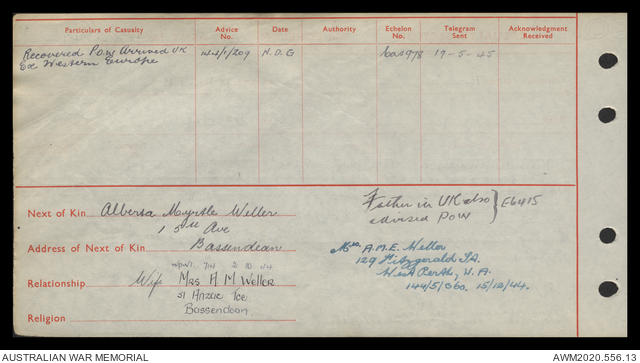 Particulars of Casualty Advice No. Date Authority Echelon No. Telegram Sent Acknowledgment Received
Recovered POW Arrived UK 44/1/209 N.D.G Cas 978 19-5-45
Ex Western Europe
Next of Kin Alberta Myrtle Weller
1 5th Ave
Father in UK also } E6415
advised POW
Address of Next of Kin Bassendean
Mrs. A.M.E. Weller
129 Fitzgerald St.
West Perth, W.A.
144/5/360. 15/12/44.
2 10 44
Relationship Wife Mrs A M Weller
51 Anzac Tce
Bassendean
Religion
AUSTRALIAN WAR MEMORIAL AWM2020.556.13